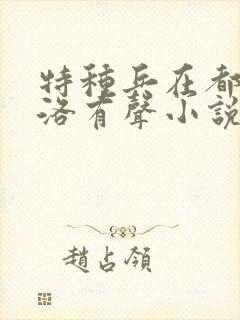 特種兵在都
洛有聲小說
趙占領